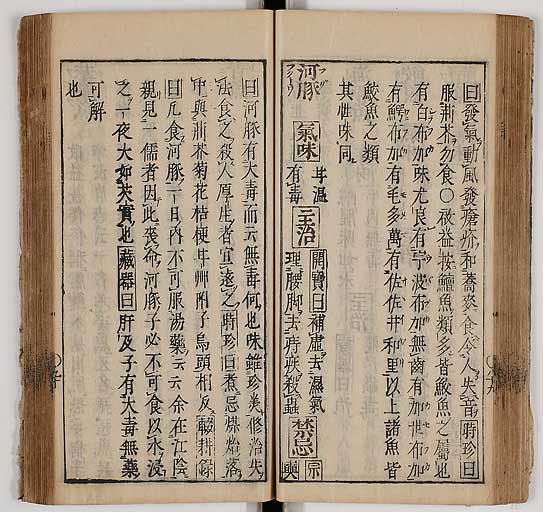 曰發氣動風發瘡疥和蕎麥食令人失音時珍曰
服荊芥勿食○啟益按鱣魚類多皆鮫魚之屬也
有白布加味尤良有宁波布加無齒有加世布加
有鰐布加有毛多萬有佐佐井和里以上諸魚皆
鮫魚之類
其性味同
河豚 氣味 甘温有毒 主治 開寶曰補虛去濕氣理腰脚去痔疾殺蟲 禁忌 宗奭
曰河豚有大毒而云無毒何也味雖珍美修治失
法食之殺人厚生者宜遠之時珍曰煮忌煤炲落
中與荊芥菊花桔梗甘艸附子烏頭相反輟耕録
曰凡食河豚一日內不可服湯藥云云余在江陰
親見一儒者因此喪命河豚子必不可食以水浸
之一夜大如芡實也藏器曰肝及子有大毒無藥
可解
也